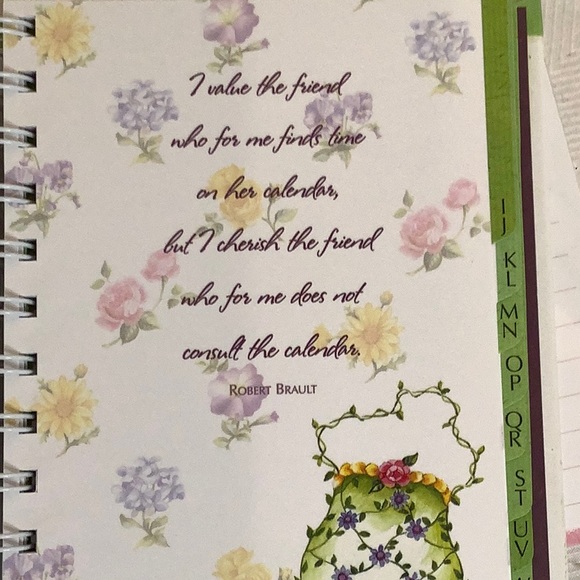 I value the friend
who for me finds time
on her calendar,
but I cherish the friend
who for me does not
consult the calendar.
ROBERT BRAULT
IJ
KL
MN
OP
QR
ST
UV